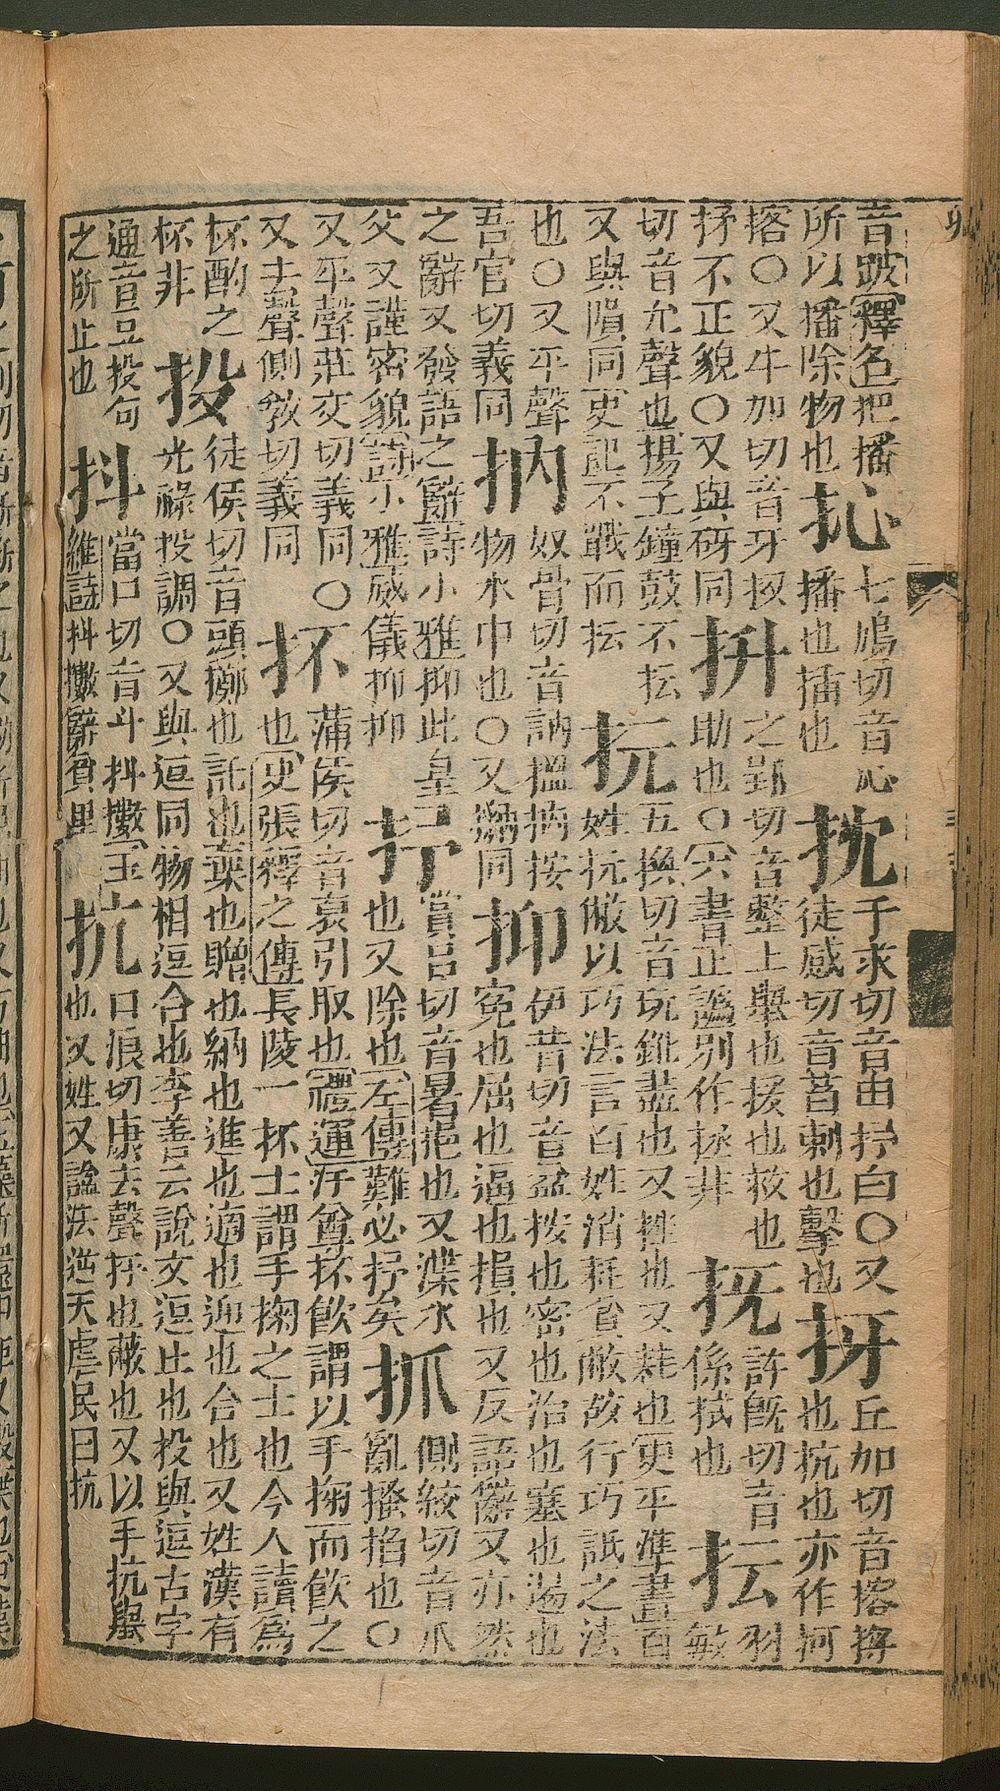 音跛釋名把播
所以播除物也
抋
七鴆切音沁
播也插也
抌
于求切音由抒臼〇又
徒感切音萏刺也擊也
㧎
丘加切音揢搿
也抗也亦作抲
揢〇又牛加切音牙掜
抙不正貌〇又與砑同
抍
之郢切音整上舉也援也救也
助也〇六書正譌別作拯非
抚
許旣切音
係拭也
抎
羽
敏
切音允聲也揚子鐘鼓不抎
又與隕同史記不戰而抎
抏
五換切音玩錐盡也又挫也又耗也更平準書百
姓抏敝以巧法言百姓消耗貧敝故行巧詆之法
也〇又平聲
吾官切義同
抐
奴骨切音訥搵抐按
物水中也〇又𢹬同
抑
伊昔切音益按也密也治也塞也遏也
冤也屈也逼也損也又反語辭又亦然
之辭又發語之辭詩小雅抑此皇
父又謹密貌詩小雅威儀抑抑
抒
賞呂切音暑挹也又渫水
也又除也左傳難必抒矣
抓
側絞切音爪
亂搔掐也〇
又平聲莊交切義同〇
又去聲側敎切義同
抔
蒲侯切音裒引取也禮運汙尊抔飮謂以手掬而飮之
也史張釋之傳長陵一抔土謂手掬之土也今人讀爲
杯酌之
杯非
投
徒侯切音頭擲也託也棄也贈也納也進也適也迎也合也又姓漢有
光祿投調〇又與逗同物相逗合也李善云說文逗止也投與逗古字
通音豆投句
之所止也
抖
當口切音斗抖擻王
維詩抖擻辭貧里
抗
口浪切康去聲扞也蔽也又以手抗舉
也又姓又諡法逆天虐民曰抗